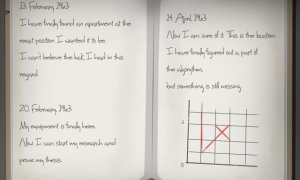 13. February 1963
I have finally found an apartment at the
exact position I wanted it to be.
I can't believe the luck I had in this
regard.
20. February 1963
My equipment is finally here.
Now I can start my research and
prove my thesis.
14. April 1963
Now I am sure of it. This is the location.
I have finally figured out a part of
the algorithm.
but something is still missing.
0